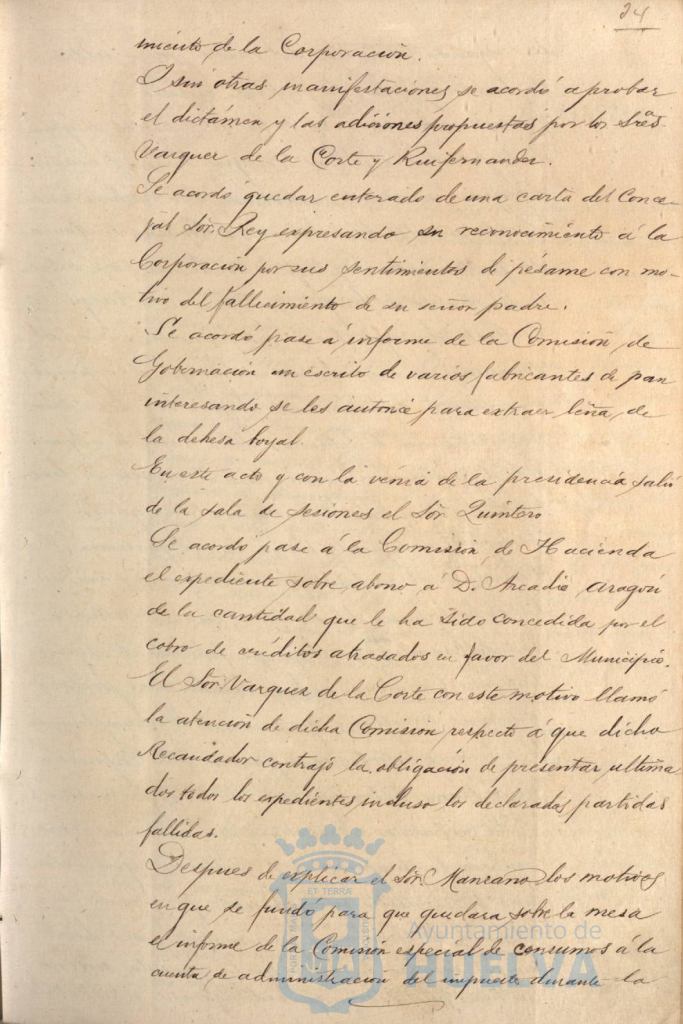 24
miento de la Corporación.
I sin otras manifestaciones se acordó aprobar
el dictámen y las adiciones propuestas por los Sres
Vazquez de la Corte y Ruifernandez.
Se acordó quedar enterado de una carta del Conce-
jal Sor. Rey expresando su reconocimiento á la
Corporación por sus sentimientos de pésame con mo-
tivo del fallecimiento de su señor padre.
Se acordó pase á informe de la Comisión de
Gobernación un escrito de varios fabricantes de pan
interesando se les autorice para extraer leña de
la dehesa boyal.
En este acto y con la venia de la presidencia salió
de la sala de sesiones el Sor. Quintero
Se acordó pase á la Comisión de Hacienda
el expediente sobre abono á D. Arcadio Aragón
de la cantidad que le ha sido concedida por el
cobro de créditos atrasados en favor del Municipio.
El Sor. Vazquez de la Corte con este motivo llamó
la atención de dicha Comisión respecto á que dicho
Recaudador contrajo la obligación de presentar ultima
dos todos los expedientes, incluso los declarados partidas
fallidas.
Despues de explicar el Sor. Manzano los motivos
en que se fundó para que quedara sobre la mesa
el informe de la Comisión especial de consumos á la
cuenta de administración del impuesto durante la
Ayuntamiento de
HUELVA